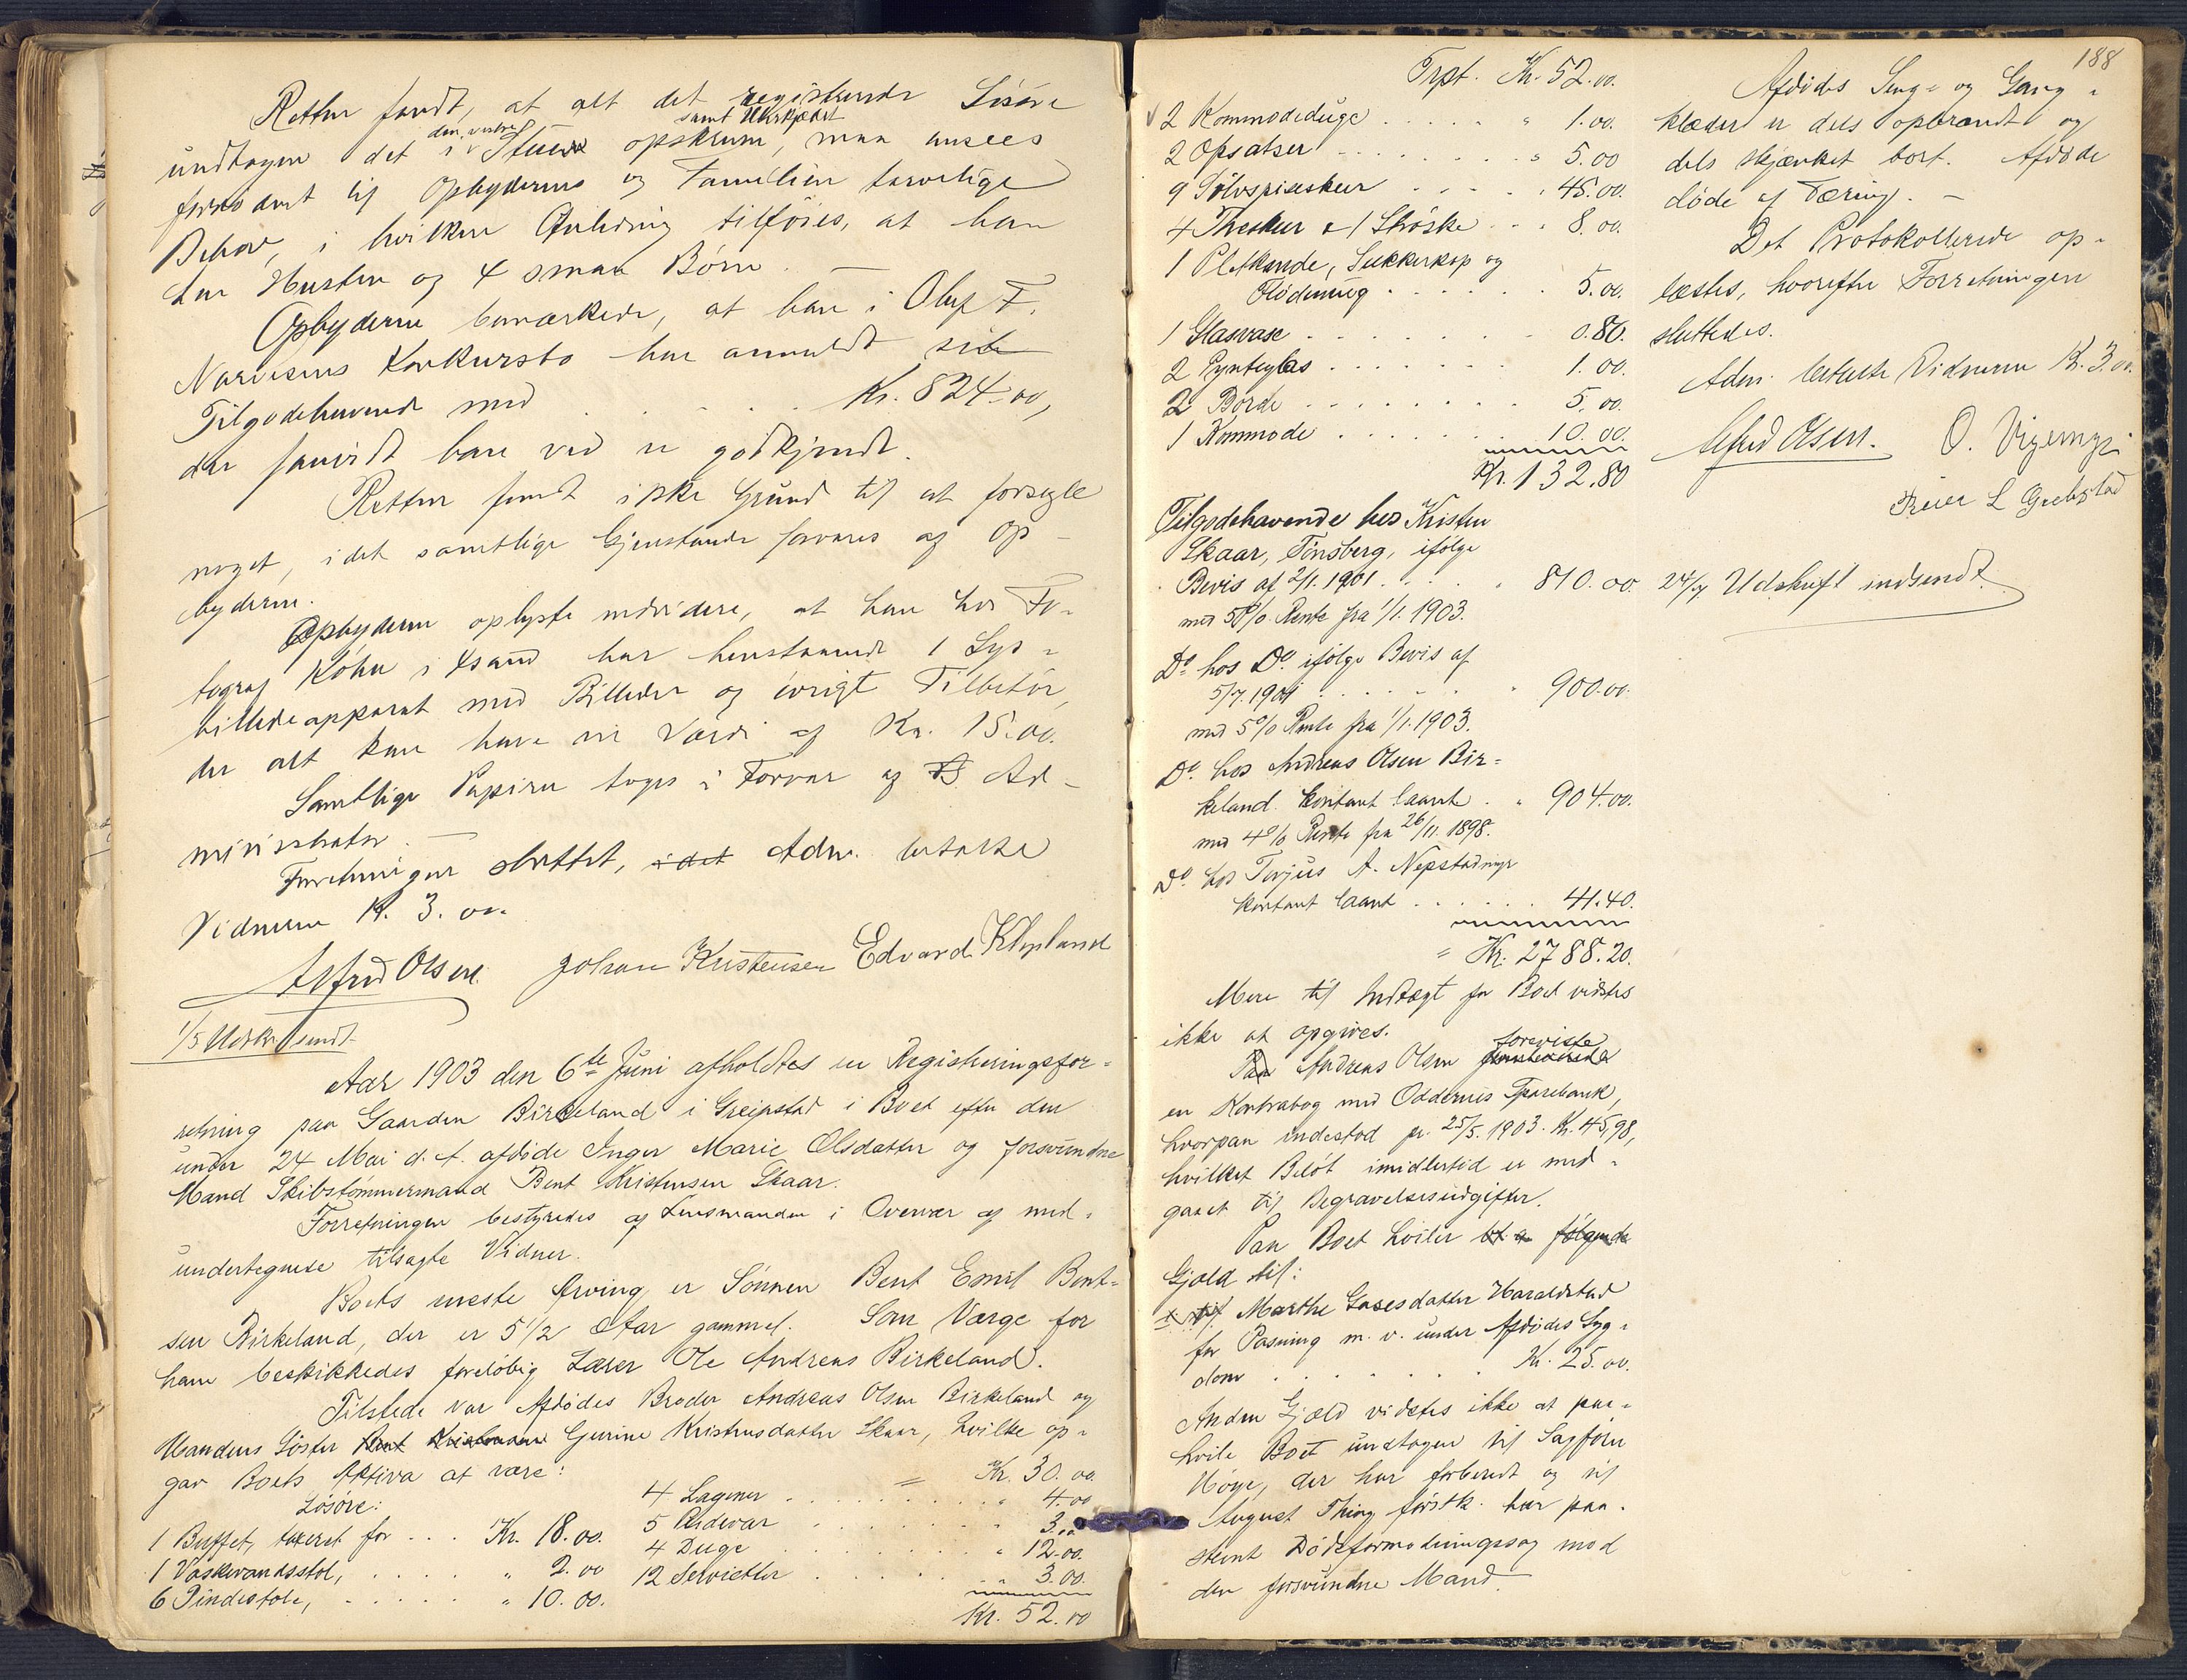 Retten fandt, at alt det registrerede Løsøre
undtagen det i den vestre Stue opskrevne, samt Uhrkjædet, maa ansees
fornødent til Opbyderens og Familien tarvelige
Behov, i hvilken Anledning tilføies, at han
har Hustru og 4 smaa Børn. —
Opbyderen bemærkede, at han i Oluf F.
Narvesens Konkursbo har anmeldt sit
Tilgodehavende med . . . . . Kr. 824.00,
der saavidt han ved er godkjendt.
Retten fandt ikke Grund til at forsegle
noget, idet samtlige Gjenstande forvares af Op-
byderen.
Opbyderen oplyste endvidere, at han hos Fo-
tograf Køhn i Ksand har henstaaende 1 Lys-
billedeapparat med Billeder og øvrigt Tilbehør,
der alt kan have en Værdi af Kr. 15.00.
Samtlige Papirer toges i Forvar af Ad-
ministrator. —
Forretningen sluttet, idet Adm. betalte
Vidnerne Kr. 3.00.
Alfred Olsen. Johan Kristensen Edvard Klepland
1/5 Udskr. sendt.
Aar 1903 den 6te Juni afholdtes en Registreringsfor-
retning paa Gaarden Birkeland i Greipstad i Boet efter den
under 24 Mai d. A. afdøde Inger Marie Olsdatter og forsvundne
Mand Skibstømmermand Bent Kristensen Skaar.
Forretningen bestyredes af Lensmanden i Overvær af med-
undertegnede tilsagte Vidner.
Boets eneste Arving er Sønnen Bent Emil Bent-
sen Birkeland, der er 5 1/2 Aar gammel. Som Værge for
ham beskikkedes foreløbig Lærer Ole Andreas Birkeland.
Tilstede var Afdødes Broder Andreas Olsen Birkeland og
Mandens Søster Bent Kristensen Gurine Kristensdatter Skaar, hvilke op-
gav Boets Aktiva at være:
Løsøre:
1 Buffet, taxeret for . . . Kr. 18.00.
1 Vaskevandsstol, . . . . . " 2.00
6 Pindestole, . . . . . " 10.00.
= Kr. 30.00
4 Lagener . . . . . . . . " 4.00
5 Pudevar . . . . . . . . " 3.00
4 Duge . . . . . . . . " 12.00.
12 Servietter . . . . . . . " 3.00.
Kr. 52.00
188
Trpt. Kr. 52.00.
2 Kommodeduge . . . . . " 1.00.
2 Opsatser . . . . . . . " 5.00
9 Sølvspiseskeer . . . . " 45.00.
4 Theskeer & 1 Strøske . . . 8.00.
1 Pletkande, Sukkerkop og
Flødemug . . . . . . 5.00.
1 Glasvase . . . . . . . 0.80.
2 Pynteglas . . . . . . . 1.00.
2 Borde . . . . . . . . 5.00.
1 Kommode . . . . . . . 10.00.
Kr. 132.80
Tilgodehavende hos Kristen
Skaar, Tønsberg, ifølge
Bevis af 2/1.1901 . . . . " 810.00
med 5% Rente fra 1/1.1903.
Do hos Do ifølge Bevis af
5/7.1901 . . . . . . " 900.00.
med 5% Rente fra 1/1.1903.
Do hos Andreas Olsen Bir-
keland kontant laant . . " 904.00.
med 4% Rente fra 26/11.1898.
Do hos Terjus A. Nepstadmyr
kontant laant . . . . . . 41.40.
= Kr. 2788.20.
Mere til Indtægt for Boet vidstes
ikke at opgives.
Paa Andreas Olsen foreviste
en Kontrabog med Oddernes Sparebank,
hvorpaa indestod pr. 25/5.1903. Kr. 45,98,
hvilket Beløb imidlertid er med-
gaaet til Begravelsesudgifter.
Paa Boet hviler bl. a. følgende
Gjæld til:
1. til Marthe Gasesdatter Haraldstad
for Pasning m. v. under Afdødes Syg-
dom . . . . . . . . Kr. 25.00.
Anden Gjæld vidstes ikke at paa-
hvile Boet undtagen til Sagfører
Høye, der har forberedt og til
August Thing førstk. har paa-
stevnt Dødsformodningssag mod
den forsvundne Mand.
Afdødes Senge- og Gang-
klæder er dels opbrændt og
dels skjænket bort. Afdøde
døde af Tæring. —
Det Protokollerede op-
læstes, hvorefter Forretningen
sluttedes.
Adm. betalte Vidnerne Kr. 3.00.
Alfred Olsen. O. Vigemyr
L Greibstad
24/7 Udskrift indsendt.